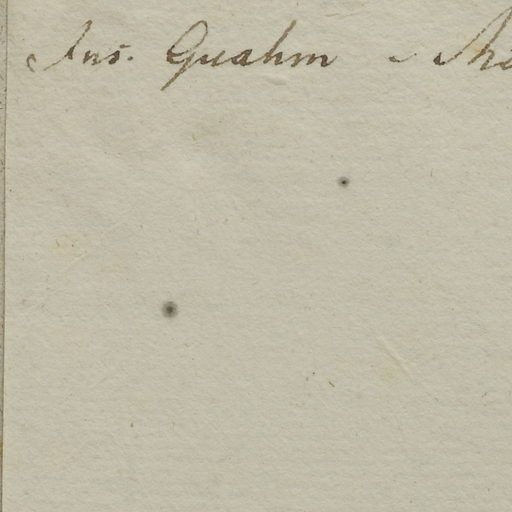 Ins. Guahm -